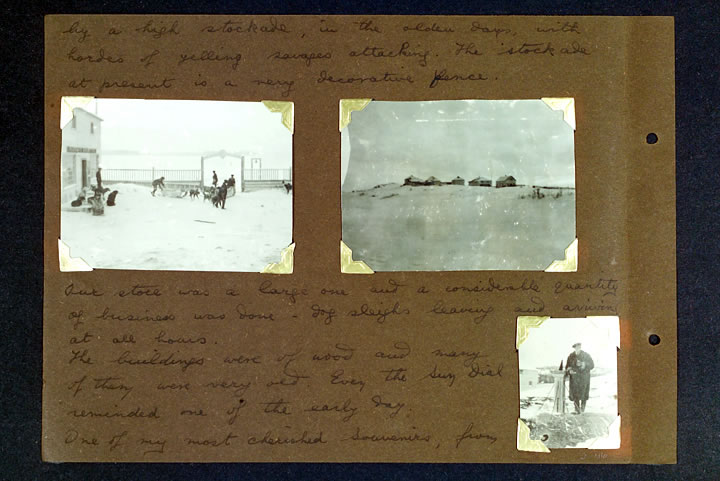 by a high stockade, in the olden days, with
hordes of yelling savages attacking. The stockade
at present is a very decorative fence.
Our store was a large one and a considerable quantity
of business was done - Dog sleighs leaving and arriving
at all hours.
The buildings were of wood and many
of them were very old. Even the Sun Dial
reminded one of the early day.
One of my most cherished souvenirs, from